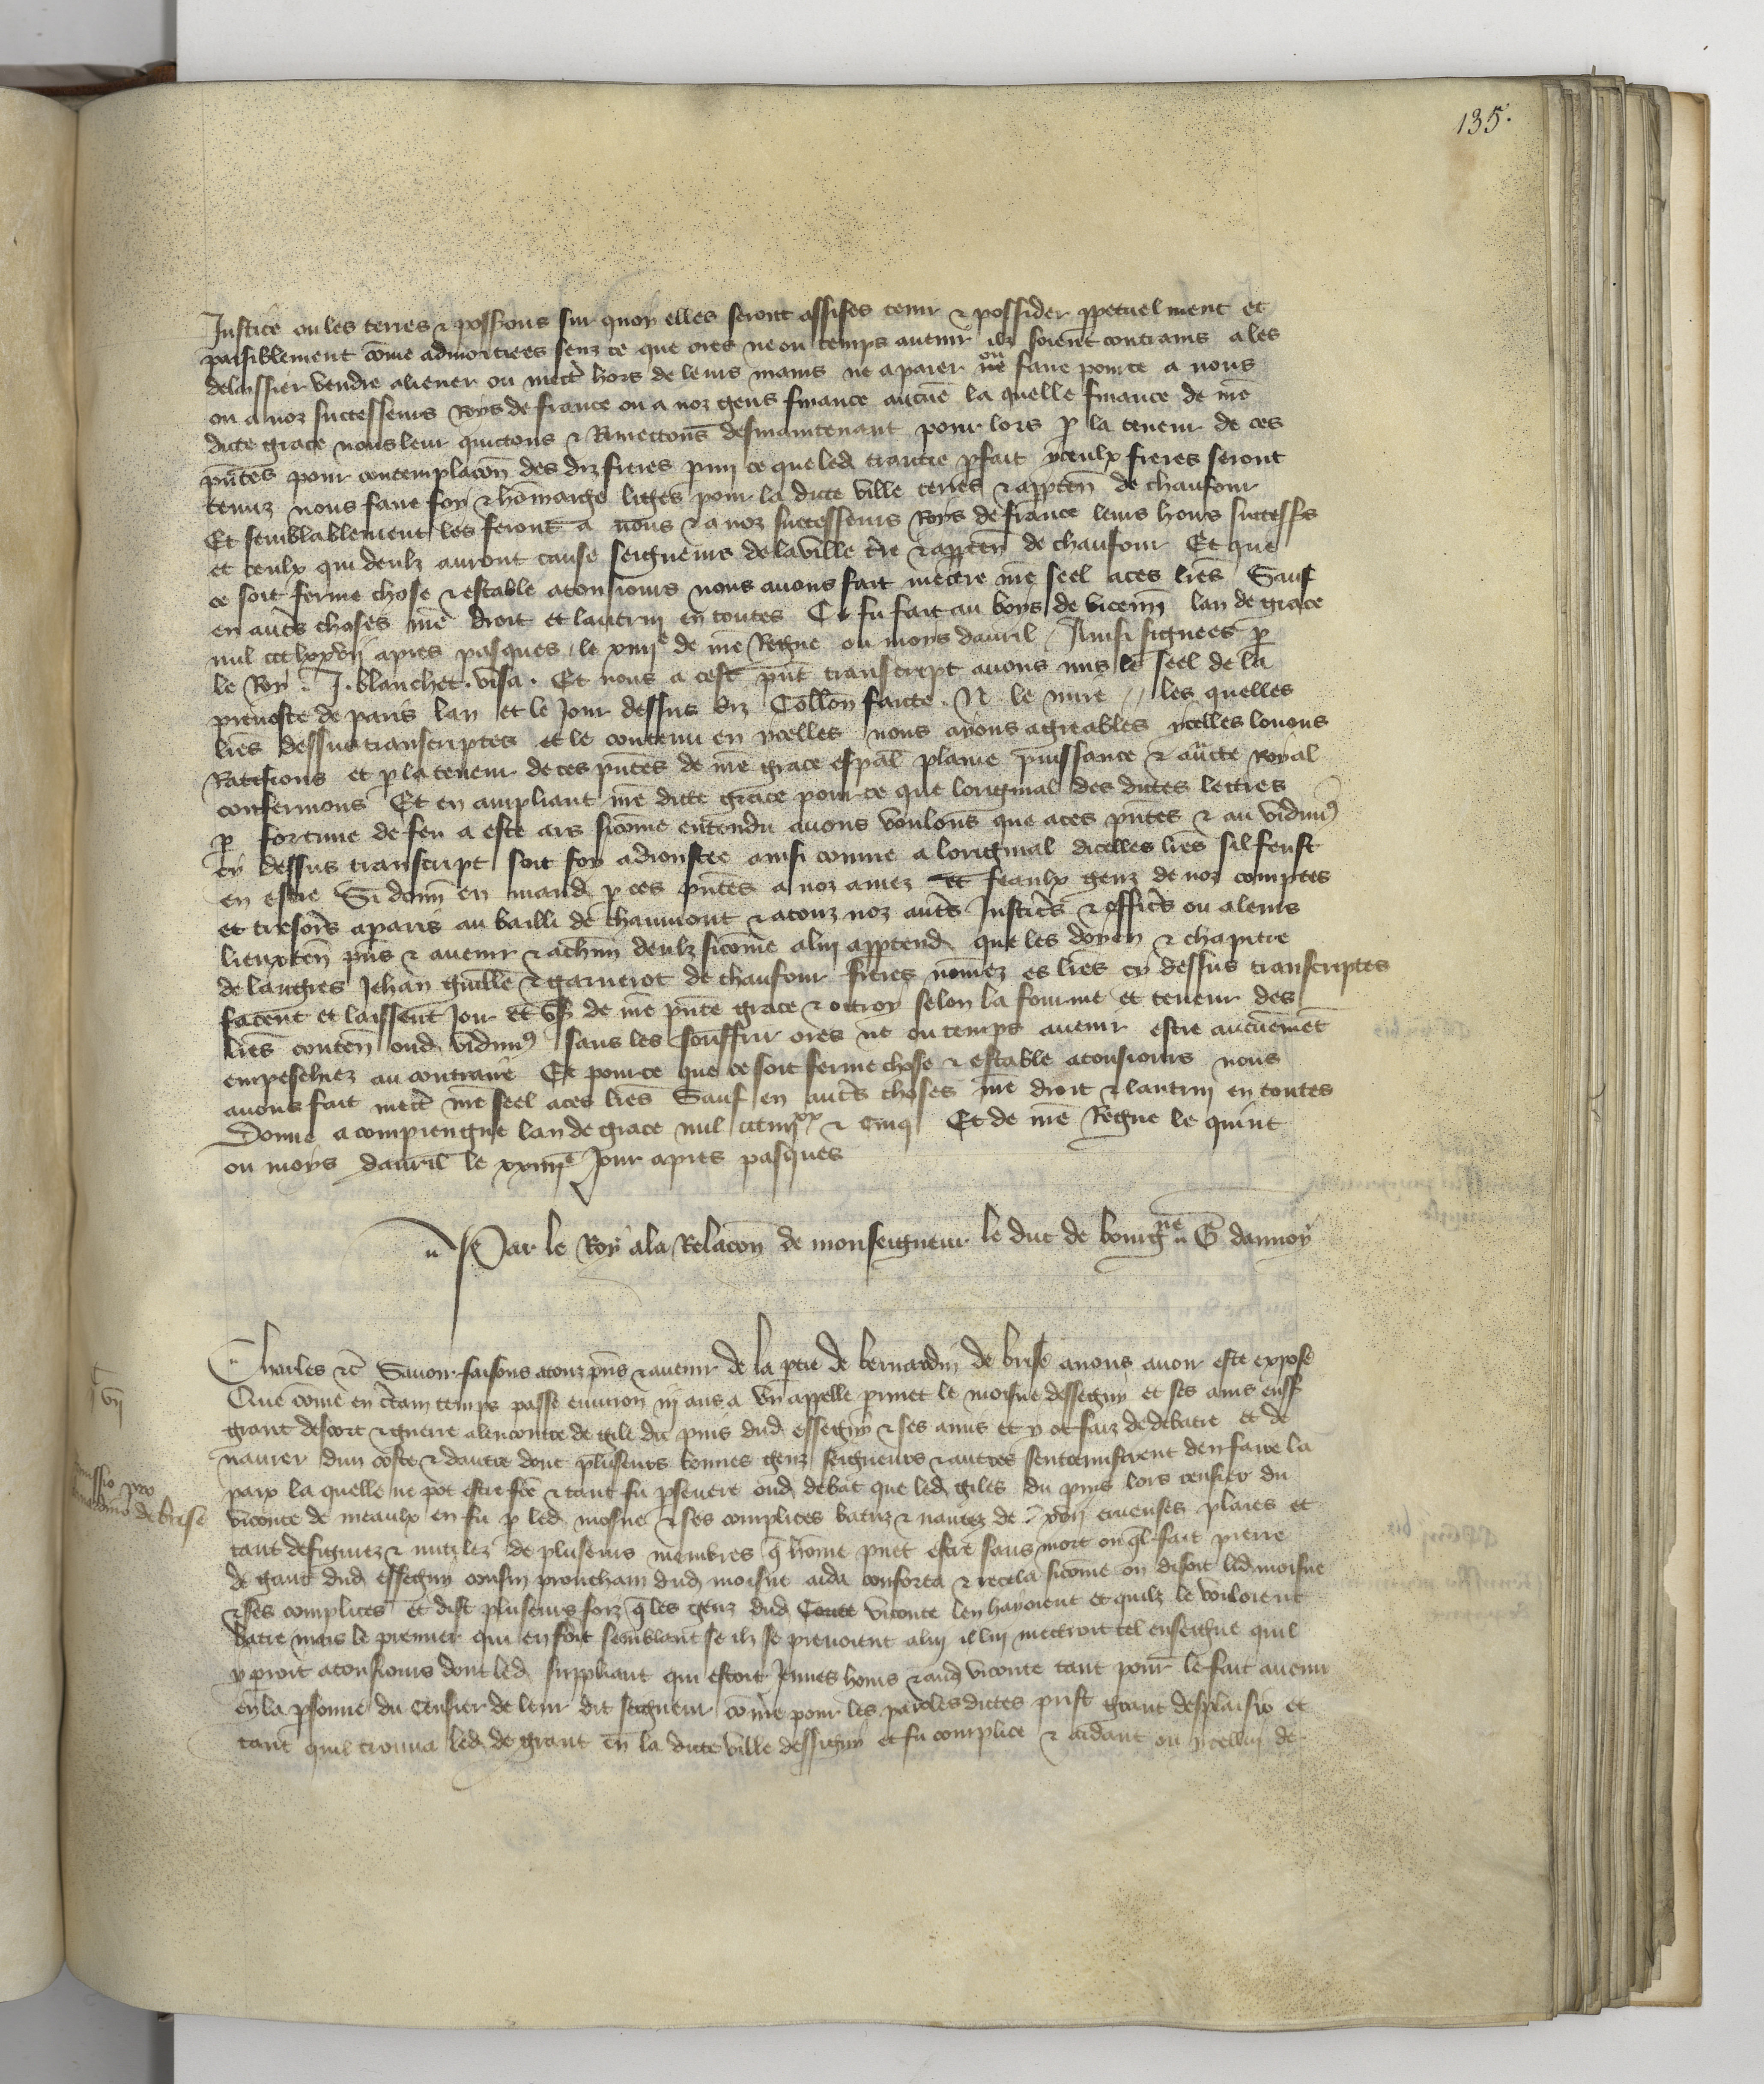 135.
Justice ou les terres & possess̃ons sur quoy elles seront assises tenir & possider ꝑpetuelment et
paisiblement cõme admorties senz ce que ores ne ou temps auenir ilz soient contrains a les
delaissier vendre aliener ou mectr̃ hors de leurs mains ne a paier ou faire pource a nous
ou a noz successeurs Roys de france ou a noz gens finance aucũe la quelle finance de nr̃e
dicte grace nous leur quictons & Remectons desmaintenant pour lors ꝑ la teneur de ces
pñtes pour contemplacõn des diz freres parmi ce que led traictie ꝑfait yceulx freres seront
tenuz nous faire foy & hõmaige liges pour la dicte ville terres & apptẽn de chaufour
Et semblablement les feront a nous & a noz successeurs Roys de france leurs hoirs successrs
et ceulx qui deulz auront cause seigneurs de la ville tr̃re & apptẽn de chaufour Et que
ce soit ferme chose & estable a tousiours nous auons fait mectre nr̃e seel a ces lr̃es Sauf
en autr̃s choses nr̃e droit et lautruy en toutes Ce fu fait au boys de vicenn̄ lan de grace
mil ccclxxvij apres pasques le xiiije de nr̃e Regne ou moys dauril Ainsi signees ꝑ
le Roy . J. blanchet . visa . Et nous a cest pñt transcript auons mis le seel de la
preuoste de paris lan et le Jour dessus diz Collõn faicte . N. le mire // les quelles
lr̃es dessus transcriptes et le contenu en ycelles nous ayons agreables ycelles louons
Ratifions et ꝑ la teneur de ces pñtes de nr̃e grace espãl plaine puissance & auc̃te Royal
confermons Et en ampliant nr̃e dicte grace pour ce que loriginal des dictes lectres
ꝑ fortune de feu a este ars sicõme entendu auons voulons que a ces pñtes & au vidimꝰ
cy dessus transcript soit foy adioustee ainsi comme a loriginal dicelles lr̃es sil feust
en estre Si donn̄ en mand ꝑ ces pñtes a noz amez et feaulx genz de noz comptes
et tresor̃s a paris au bailli de chaumont & a touz noz autr̃s Justic̃s & offic̃s ou a leurs
lieuxten̄ pñs & auenir & a chun̄ deulz sicõme a lui apptend que les doyen & chapitre
de langres Jehan guill̃e & garnerot de chaufour freres nõmez es lr̃es cy dessus transcriptes
facent et laissent Jour et vs̃ de nr̃e pñte grace & ottroy selon la fourme et teneur des
lr̃es conten̄ oud vidimꝰ sans les souffrir ores ne ou temps auenir estre aucũemẽt
empeschiez au contraire Et pource que ce soit ferme chose & estable a tousiours nous
auons fait mectr̃ nr̃e seel a ces lr̃es Sauf en autr̃s choses nr̃e droit & lautruy en toutes
Donne a compiengne lan de grace mil ccciiijxx & Cinq Et de nr̃e Regne le quint
ou moys dauril le xxiiije Jour apres pasques
Par le Roy a la Relacõn de monseigneur le duc de bourgne G dannoy
Charles &c̃ Sauoir faisons a touz pñs & auenir de la ꝑtie de bernardin de brise a nous auoir este expose
vij
Que cõme en c̃tain temps passe enuiron iij ans a vn appelle perinet le moisne desseguy et ses amis eusst
grant descort & guerre alencontre de gile du puis dud esseguy & ses amis et y ot faiz de debatre et de
naurer dun coste & dautre dont pluseurs bonnes genz seigneurs & autres sentremistrent den faire la
paix la quelle ne pot estre fc̃e & tant fu ꝑseuere oud debat que led giles du puis lors censier du
missio pro
bernardino de brise
viconte de meaulx en fu ꝑ led moisne & ses complices batuz & naurez de xvij cruenses plaies et
tant defigurez & mutilez de pluseurs membres q̃ hõme puet estre sans mort ou q̃l fait pierre
de gant dud esseguy cousin prouchain dud moisne aida conforta & recela sicõme on disoit led moisne
& ses complices et dist pluseurs foiz q̃ les genz dud viconte len hayoient et quilz le vouloient
batre mais le premier qui en feroit semblant se ilz se prenoient a lui il lui mectroit tel enseigne quil
y ꝑroit a tousiours dont led suppliant qui estoit Jeunes homs & aud viconte tant pour le fait auenu
en la ꝑsonne du Censier de leur dit seigneur cõme pour les paroles dictes prist grant desplaisir et
tant quil trouua led de grant en la dicte ville dessiguy et fu complice & aidant ou ycellui de